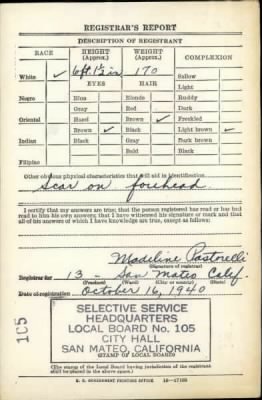 REGISTRAR'S REPORT
DESCRIPTION OF REGISTRANT
RACE HEIGHT (Approx.) WEIGHT (Approx.) COMPLEXION
White ✓ 6 ft. 1½ in 170 Sallow
EYES HAIR Light
Negro Blue Blonde Ruddy
Gray Red Dark
Oriental Hazel Brown ✓ Freckled
Brown ✓ Black Light brown ✓
Indian Black Gray Dark brown
Bald Black
Filipino
Other obvious physical characteristics that will aid in identification
Scar on forehead
I certify that my answers are true; that the person registered has read or has had
read to him his own answers; that I have witnessed his signature or mark and that all
of his answers of which I have knowledge are true, except as follows:
Madeline Pastorelli
(Signature of registrar)
Registrar for 13 - San Mateo Calif.
(Precinct) (Ward) (City or county) (State)
Date of registration October 16, 1940
1C5
SELECTIVE SERVICE
HEADQUARTERS
LOCAL BOARD No. 105
CITY HALL
SAN MATEO, CALIFORNIA
(STAMP OF LOCAL BOARD)
(The stamp of the Local Board having jurisdiction of the registrant
shall be placed in the above space.)
U. S. GOVERNMENT PRINTING OFFICE